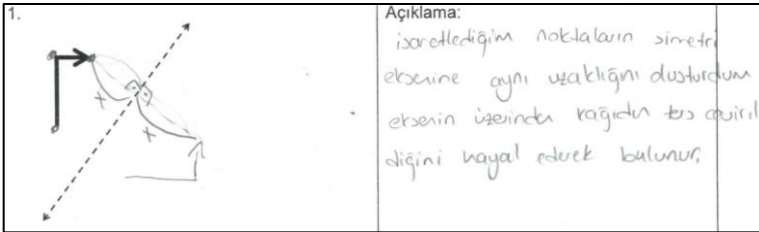 1.
x
x
Açıklama:
işaretlediğim noktaların simetri
eksenine aynı uzaklığını
eksenin üzerinden kağıdın ters çeviril
diğini hayal ederek bulunur.